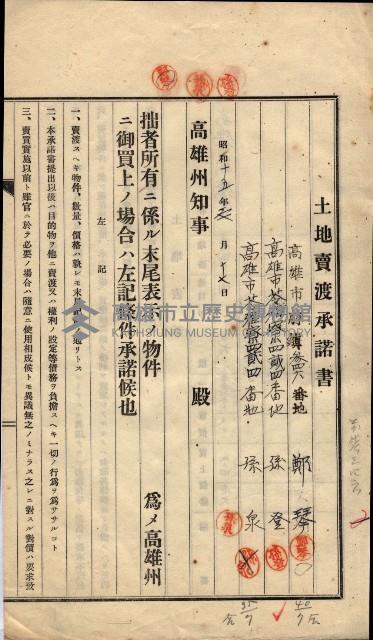 土地賣渡承諾書
高雄市 番地 鄭 琴
高雄市苓雅寮四貳四番地 孫登
高雄市苓雅寮四貳四番地 孫泉
昭和十五年 月十七日
高雄州知事 殿
拙者所有ニ係ル末尾表示ノ物件 為メ高雄州
ニ御買上ノ場合ハ左記條件承諾候也
左記
一、賣渡スヘキ物件、數量、價格ハ孰レモ末尾記 通リトス
二、本承諾書提出以後ハ目的物ヲ他ニ賣渡又ハ權利ノ設定等債務ヲ負擔スヘキ一切ノ行爲ヲ爲ササルコト
三、賣買實施以前ト雖官ニ於テ必要ノ場合ハ隨意ニ使用相成候トモ異議無之ノミナラス之レニ對スル對價ハ要求致
高雄市立歷史博物館
KAOHSIUNG MUSEUM OF HISTORY